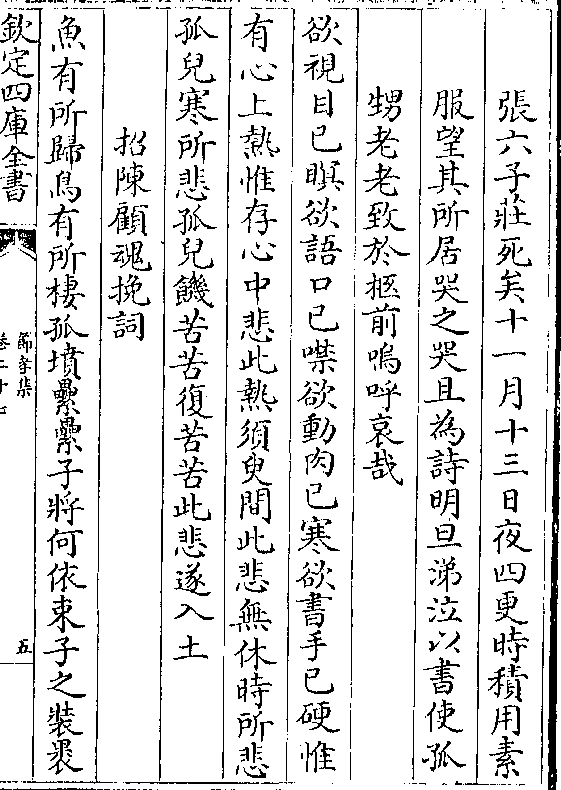 張六子莊死矣十一月十三日夜四更時積用素
服望其所居哭之哭且為詩明旦涕泣以書使孤
甥老老致於柩前嗚呼哀哉
欲視目已瞑欲語口已噤欲動肉已寒欲書手已硬惟
有心上熱惟存心中悲此熱須臾間此悲無休時所悲
孤兒寒所悲孤兒饑苦苦復苦苦此悲遂入土
招陳顧魂挽詞
魚有所歸鳥有所棲孤墳纍纍子將何依束子之裝裹
欽定四庫全書
節孝集
五